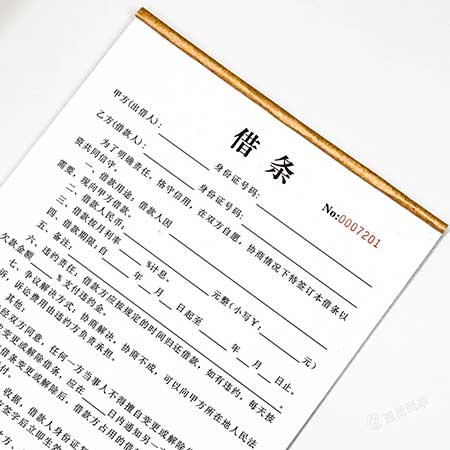 借条
No:0007201
甲方(出借人)：身份证号码：
乙方(借款人)：身份证号码：
为了明确责任、恪守信用，在双方自愿，协商情况下特签订本借条以
资共同信守。
一、借款用途：借款人因
需要，现向甲方借款。
二、借款人民币：元整(小写￥：元)
三、借款按月利率%计息。
四、借款期限：自年月日起至年月日止。
五、备注：
六、违约责任：借款方应按规定的时间归还借款，如有违约，每天按
欠款金额%支付违约金。
七、争议解决方式：协商解决，协商不成，可以向甲方所在地人民法
诉，诉讼费用由违约方负责承担。
其他：
经双方同意，任何一方当事人不得擅自变更或解除
变更或解除借条，应在日内通知另一
借条变更或解除后，借款方占用的借
收据，借款人身份证
签字后立即生效